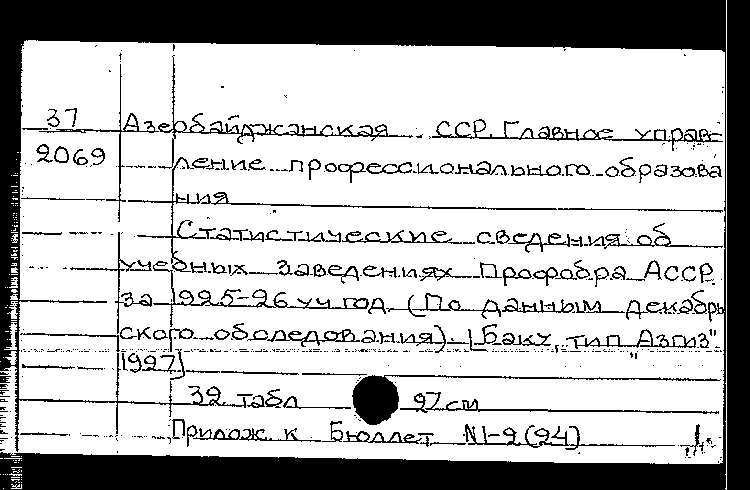 37 Азербайджанская ССР. Главное управ-
2069 ление профессионального образова
ния
Статистические сведения об
учебных заведениях Профобра АССР
за 1925-26 уч год. (По данным декабрь
ского обследования). [Баку, тип "Азгиз".
1927]
32 табл 27 см
Прилож. к Бюллет N1-2(24)